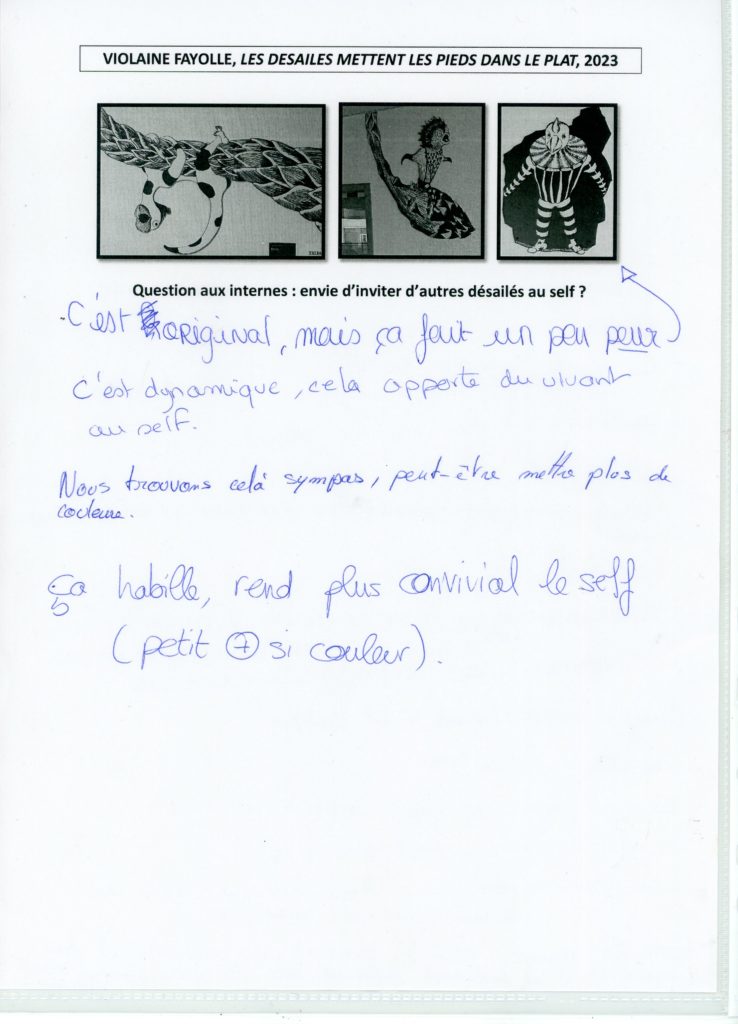 VIOLAINE FAYOLLE, LES DESAILES METTENT LES PIEDS DANS LE PLAT, 2023
Question aux internes : envie d'inviter d'autres désailés au self ?
C'est ORIGINAL, mais ça fait un peu peur
C'est dynamique, cela apporte du vivant
au self.
Nous trouvons celà sympas, peut-être mettre plos de
couleur.
ça habille, rend plus convivial le self
(petit + si couleur).